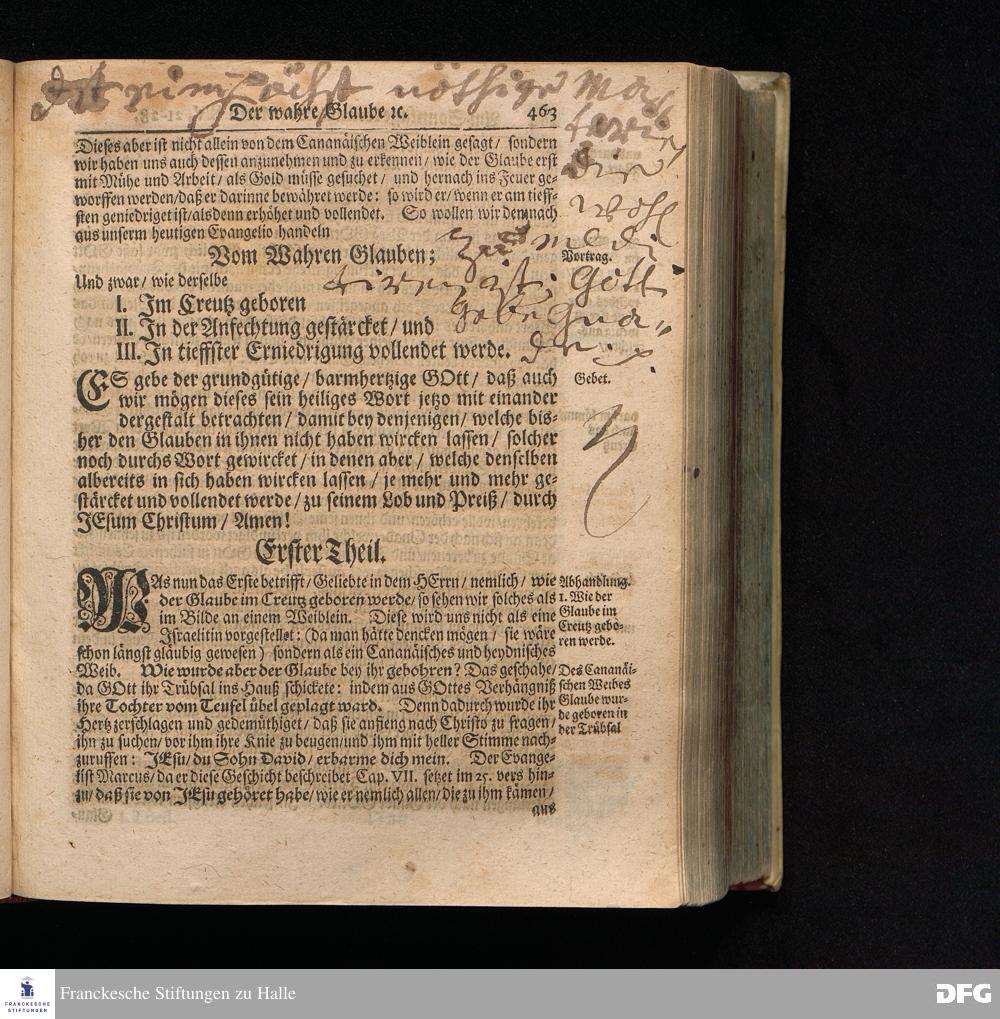 Ist ein höchst nöthige Ma-
Der wahre Glaube ꝛc. 463
terie,
die
wohl
zu medi
tiren ist; Gott
gebe Gna-
de.
Dieses aber ist nicht allein von dem Cananäischen Weiblein gesagt / sondern
wir haben uns auch dessen anzunehmen und zu erkennen / wie der Glaube erst
mit Mühe und Arbeit / als Gold müsse gesuchet / und hernach ins Feuer ge-
worffen werden / daß er darinne bewähret werde: so wird er / wenn er am tieff-
sten geniedriget ist / alsdenn erhöhet und vollendet. So wollen wir demnach
aus unserm heutigen Evangelio handeln
Vom Wahren Glauben;
Vortrag.
Und zwar / wie derselbe
I. Im Creutz geboren
II. In der Anfechtung gestärcket / und
III. In tieffster Erniedrigung vollendet werde.
ES gebe der grundgütige / barmhertzige GOtt / daß auch
Gebet.
wir mögen dieses sein heiliges Wort jetzo mit einander
dergestalt betrachten / damit bey denjenigen / welche bis-
her den Glauben in ihnen nicht haben wircken lassen / solcher
noch durchs Wort gewircket / in denen aber / welche denselben
albereits in sich haben wircken lassen / je mehr und mehr ge-
stärcket und vollendet werde / zu seinem Lob und Preiß / durch
JEsum Christum / Amen!
Erster Theil.
WAs nun das Erste betrifft / Geliebte in dem HErrn / nemlich / wie
der Glaube im Creutz geboren werde / so sehen wir solches als
im Bilde an einem Weiblein. Diese wird uns nicht als eine
Israelitin vorgestellet: (da man hätte dencken mögen / sie wäre
schon längst gläubig gewesen) sondern als ein Cananäisches und heydnisches
Weib. Wie wurde aber der Glaube bey ihr gebohren? Das geschahe /
da GOtt ihr Trübsal ins Hauß schickete: indem aus GOttes Verhängniß
ihre Tochter vom Teufel übel geplagt ward. Denn dadurch wurde ihr
Hertz zerschlagen und gedemüthiget / daß sie anfieng nach Christo zu fragen /
ihn zu suchen / vor ihm ihre Knie zu beugen / und ihm mit heller Stimme nach-
zuruffen: JEsu / du Sohn David / erbarme dich mein. Der Evange-
list Marcus / da er diese Geschicht beschreibet Cap. VII. setzet im 25. vers hin-
zu / daß sie von JEsu gehöret habe / wie er nemlich allen / die zu ihm kämen /
aus
Abhandlung.
1. Wie der
Glaube im
Creutz gebo-
ren werde.
Des Cananäi-
schen Weibes
Glaube wur-
de geboren in
der Trübsal
FRANCKESCHE
STIFTUNGEN
Franckesche Stiftungen zu Halle
DFG